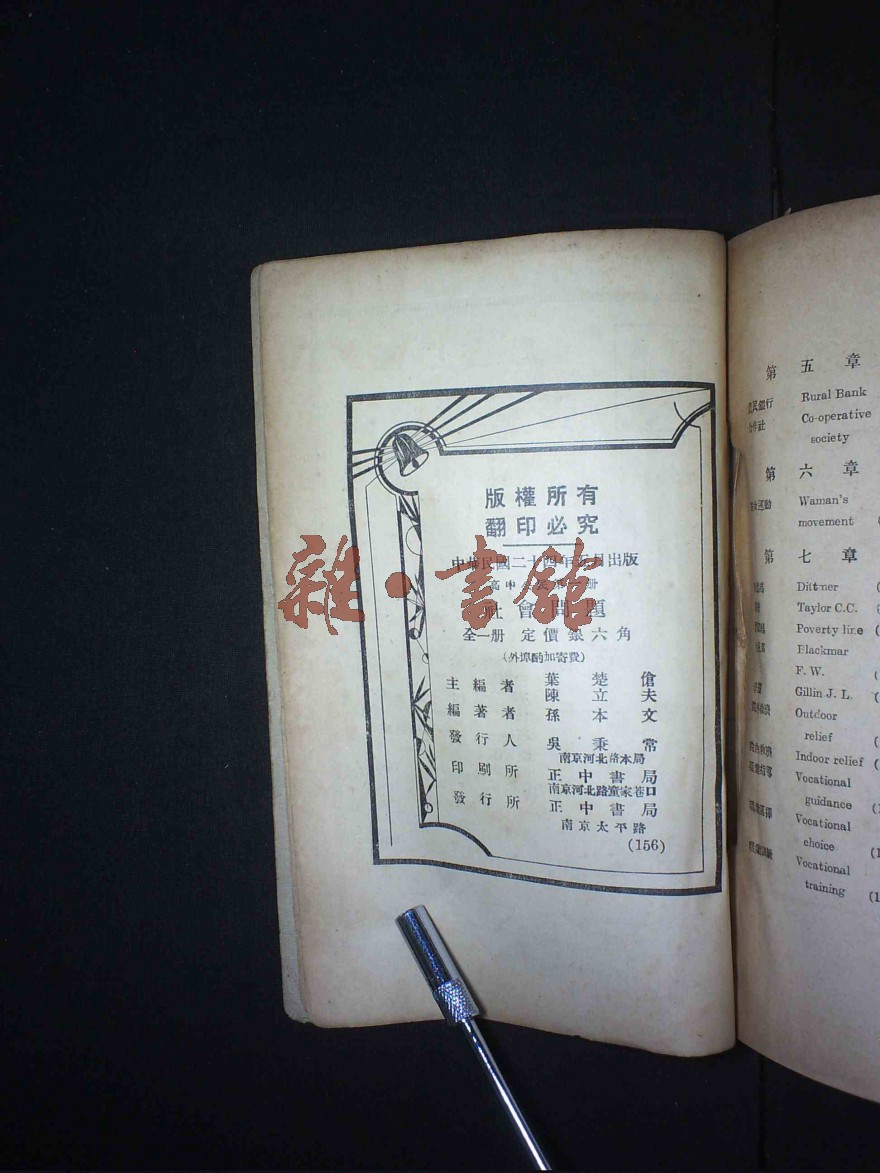 版權所有
翻印必究
中華民國二十四年 月出版
高中 第一册
社會問題
全一册 定價銀六角
（外埠酌加寄費）
主編者 葉楚傖
陳立夫
編著者 孫本文
發行人 吳秉常
南京河北路本局
印刷所 正中書局
南京河北路童家巷口
發行所 正中書局
南京太平路
(156)
雜·書館
第五章
農民銀行 Rural Bank
合作社 Co-operative
society
第六章
婦女運動 Waman's
movement (
第七章
Dittmer (
Taylor C.C. (
Poverty line (
Blackmar
F. W. (
Gillin J. L. (
Outdoor
relief (
Indoor relief (
Vocational
guidance (1
Vocational
choice (1
Vocational
training (1